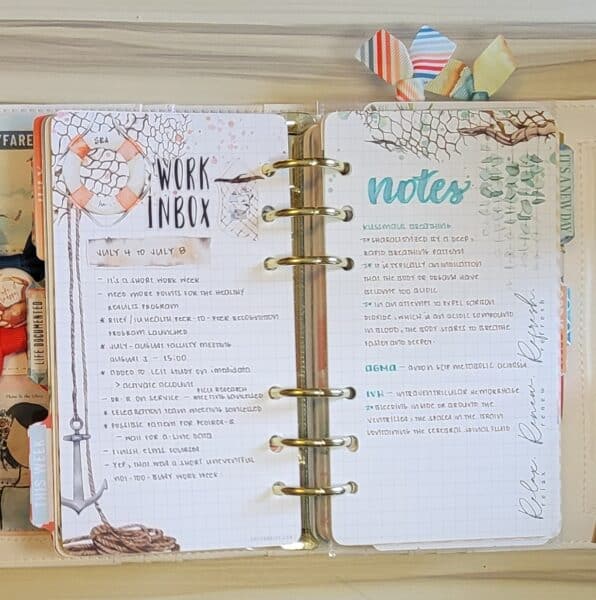 YFARE
LIFE DOCUMENTED
THIS WEEK
SEA
WORK
INBOX
JULY 4 TO JULY 8
- IT'S A SHORT WORK WEEK
- NEED MORE POINTS FOR THE HEALTHY
RESULTS PROGRAM
PEER-TO-PEER RECOGNITION
PROGRAM LAUNCHED
* JULY - AUGUST FACULTY MEETING
AUGUST 3 - 15:00
* ADDED TO STUDY ON
> ACTIVATE ACCOUNT
RESEARCH
DR. R ON SERVICE - MEETING CANCELLED
* CELEBRATION TEAM MEETING CANCELLED
* POSSIBLE PATIENT FOR
- WAIT FOR DATA
- FINISH
- YEP, THAT WAS A SHORT UNEVENTFUL
NOT-TOO-BUSY WORK WEEK
notes
KUSSMAUL BREATHING
CHARACTERIZED BY A DEEP,
RAPID BREATHING PATTERN
IT IS TYPICALLY AN INDICATION
THAT THE BODY OR ORGANS HAVE
BECOME TOO ACIDIC
IN AN ATTEMPT TO EXPEL CARBON
DIOXIDE, WHICH IS AN ACIDIC COMPOUND
IN BLOOD, THE BODY STARTS TO BREATHE
FASTER AND DEEPER.
AGMA - ANION GAP METABOLIC ACIDOSIS
IVH - INTRAVENTRICULAR HEMORRHAGE
BLEEDING INSIDE OR AROUND THE
VENTRICLES, THE SPACES IN THE BRAIN
CONTAINING THE CEREBRAL SPINAL FLUID
Relax Renew Refresh
relax renew refresh
IT'S A NEW DAY